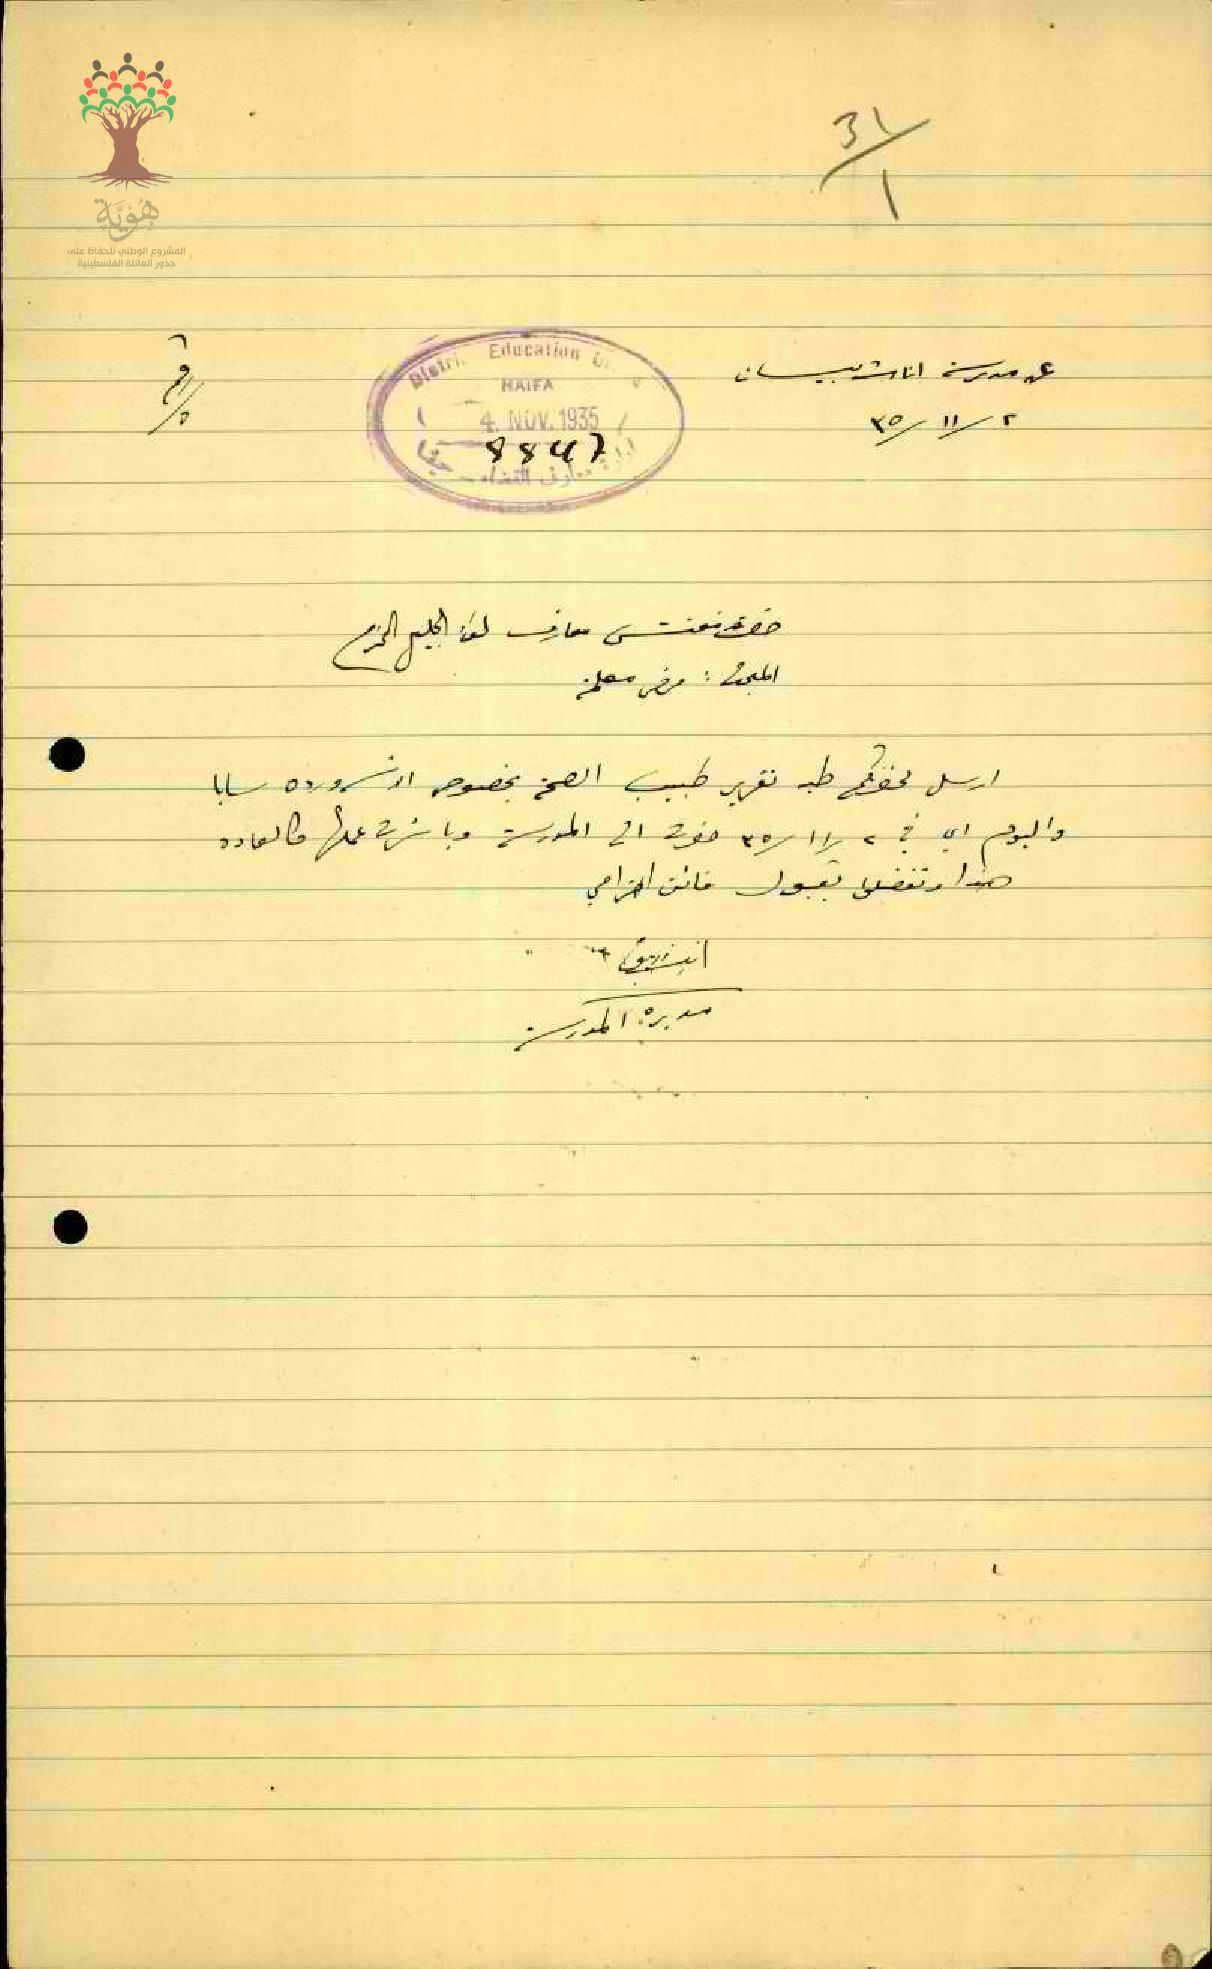 هوية
المشروع الوطني للحفاظ على
جذور العائلة الفلسطينية
31/1
عن مدرسة اناث بيسان
٢/١١/٣٥
District Education Office
HAIFA
4. NOV. 1935
8847
ادارة معارف القضاء - حيفا
حضرة مفتش معارف لواء الجليل المحترم
المبحث : مرض معلمة
ارسل لحضرتكم طيه تقرير طبيب الصحة بخصوص الانسه ورده سابا
واليوم اي في ٢/١١/٣٥ حضرت الى المدرسة وباشرت عملها كالعاده
هذا وتفضلوا بقبول فائق احترامي
مديرة المدرسة